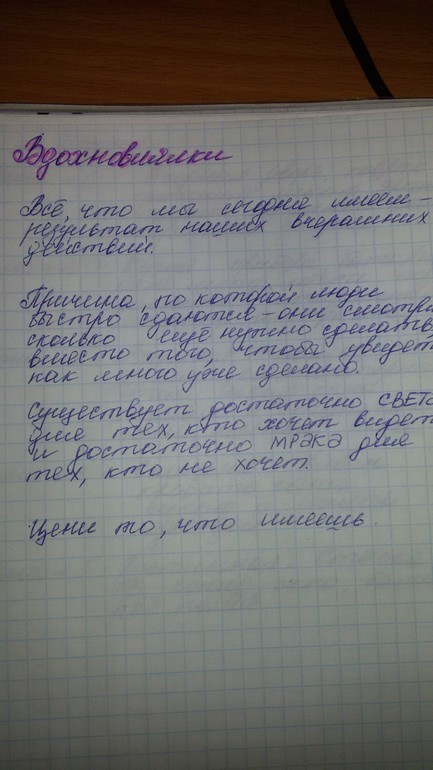 Вдохновлялки
Всё, что мы сегодня имеем –
результат наших вчерашних
действий.
Причина, по которой люди
быстро сдаются – они смотря
сколько ещё нужно сделать
вместо того, чтобы увидет
как много уже сделано.
Существует достаточно СВЕТА
для тех, кто хочет видет
и достаточно МРАКА для
тех, кто не хочет.
Цени то, что имеешь.